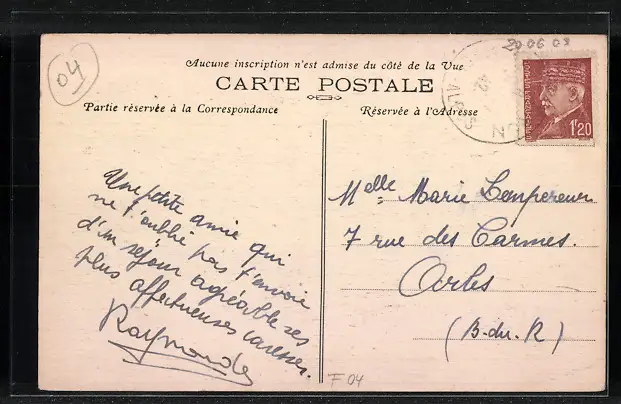 04
20 06 09
Aucune inscription n'est admise du côté de la Vue
CARTE POSTALE
Partie réservée à la Correspondance
Réservée à l'Adresse
42
1F20
Une petite amie qui
ne t'oublie pas t'envoie
d'un séjour agréable ses
plus affectueuses caresses.
Raymonde
Melle Marie Lempereur
7 rue des Carmes.
Arles
(B-du-R)
F 04